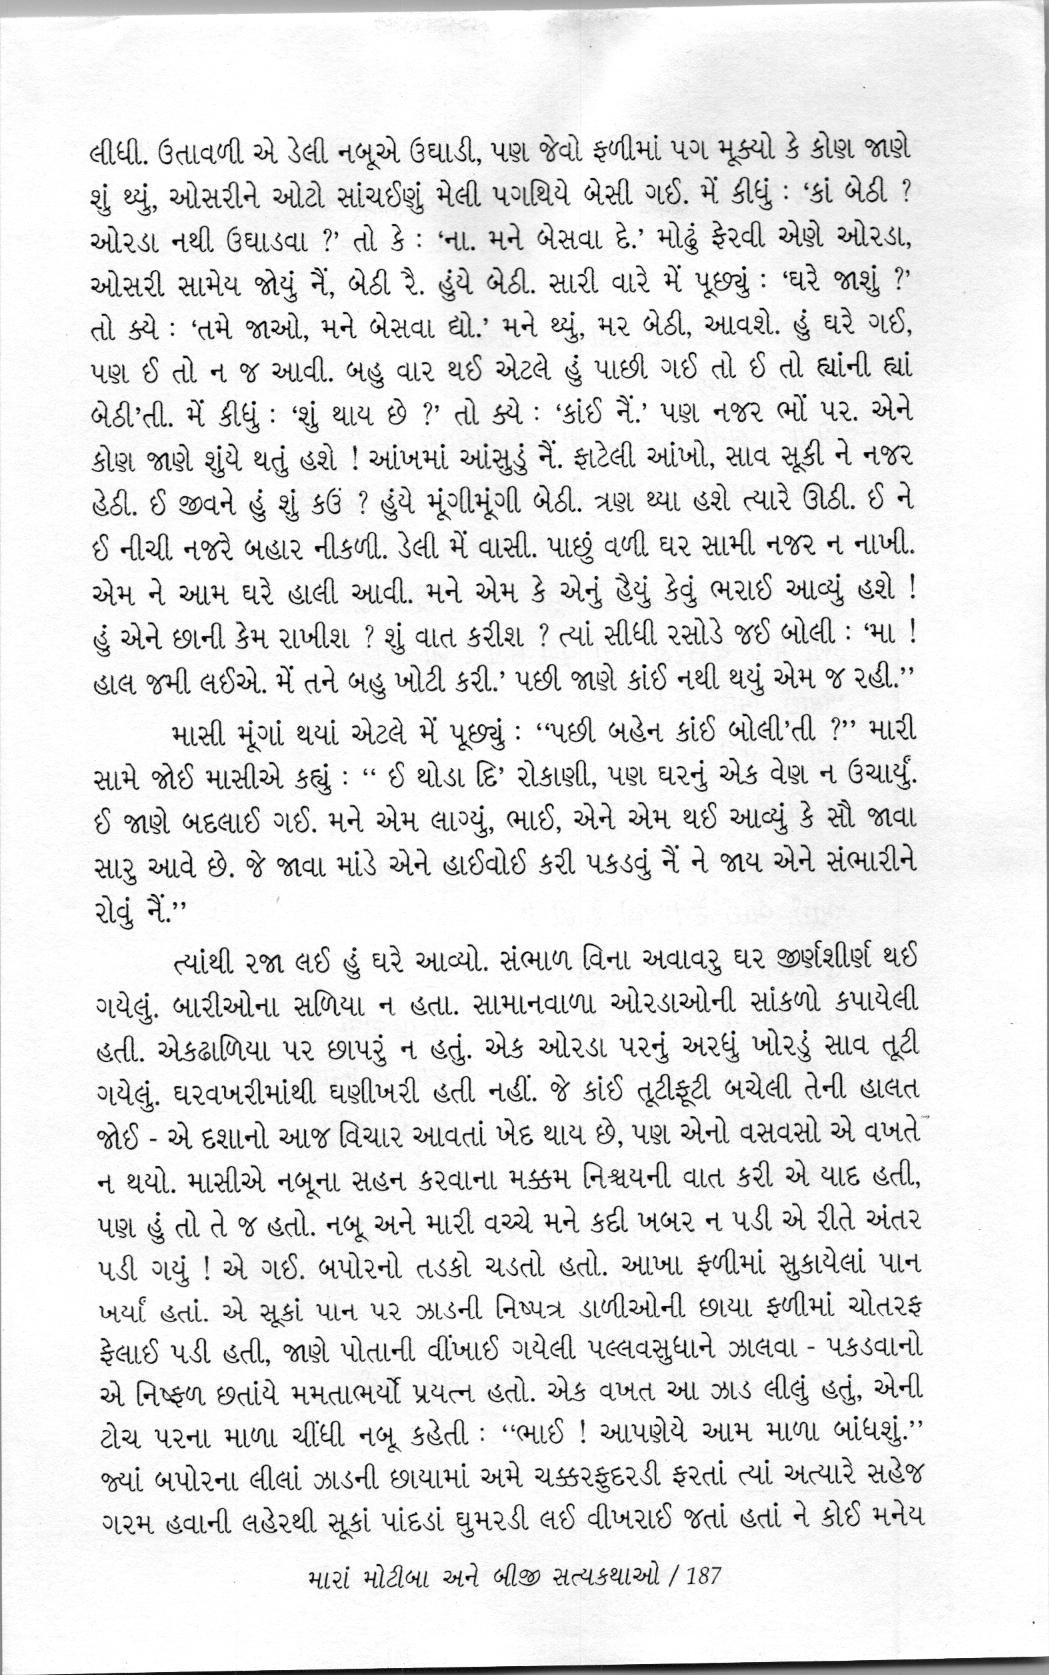 લીધી. ઉતાવળી એ ડેલી નબૂએ ઉઘાડી, પણ જેવો ફળીમાં પગ મૂક્યો કે કોણ જાણે
શું થ્યું, ઓસરીને ઓટો સાંચઈણું મેલી પગથિયે બેસી ગઈ. મેં કીધું : ‘કાં બેઠી ?
ઓરડા નથી ઉઘાડવા ?’ તો કે : ‘ના. મને બેસવા દે.’ મોઢું ફેરવી એણે ઓરડા,
ઓસરી સામેય જોયું નૈં, બેઠી રૈ. હુંયે બેઠી. સારી વારે મેં પૂછ્યું : ‘ઘરે જાશું ?’
તો ક્યે : ‘તમે જાઓ, મને બેસવા દ્યો.’ મને થ્યું, મર બેઠી, આવશે. હું ઘરે ગઈ,
પણ ઈ તો ન જ આવી. બહુ વાર થઈ એટલે હું પાછી ગઈ તો ઈ તો હ્યાંની હ્યાં
બેઠી’તી. મેં કીધું : ‘શું થાય છે ?’ તો ક્યે : ‘કાંઈ નૈં.’ પણ નજર ભોં પર. એને
કોણ જાણે શુંયે થતું હશે ! આંખમાં આંસુડું નૈં. ફાટેલી આંખો, સાવ સૂકી ને નજર
હેઠી. ઈ જીવને હું શું કઉં ? હુંયે મૂંગીમૂંગી બેઠી. ત્રણ થ્યા હશે ત્યારે ઊઠી. ઈ ને
ઈ નીચી નજરે બહાર નીકળી. ડેલી મેં વાસી. પાછું વળી ઘર સામી નજર ન નાખી.
એમ ને આમ ઘરે હાલી આવી. મને એમ કે એનું હૈયું કેવું ભરાઈ આવ્યું હશે !
હું એને છાની કેમ રાખીશ ? શું વાત કરીશ ? ત્યાં સીધી રસોડે જઈ બોલી : ‘મા !
હાલ જમી લઈએ. મેં તને બહુ ખોટી કરી.’ પછી જાણે કાંઈ નથી થયું એમ જ રહી.”
માસી મૂંગાં થયાં એટલે મેં પૂછ્યું : “પછી બહેન કાંઈ બોલી’તી ?” મારી
સામે જોઈ માસીએ કહ્યું : “ ઈ થોડા દિ’ રોકાણી, પણ ઘરનું એક વેણ ન ઉચાર્યું.
ઈ જાણે બદલાઈ ગઈ. મને એમ લાગ્યું, ભાઈ, એને એમ થઈ આવ્યું કે સૌ જાવા
સારુ આવે છે. જે જાવા માંડે એને હાઈવોઈ કરી પકડવું નૈં ને જાય એને સંભારીને
રોવું નૈં.”
ત્યાંથી રજા લઈ હું ઘરે આવ્યો. સંભાળ વિના અવાવરુ ઘર જીર્ણશીર્ણ થઈ
ગયેલું. બારીઓના સળિયા ન હતા. સામાનવાળા ઓરડાઓની સાંકળો કપાયેલી
હતી. એકઢાળિયા પર છાપરું ન હતું. એક ઓરડા પરનું અરધું ખોરડું સાવ તૂટી
ગયેલું. ઘરવખરીમાંથી ઘણીખરી હતી નહીં. જે કાંઈ તૂટીફૂટી બચેલી તેની હાલત
જોઈ - એ દશાનો આજ વિચાર આવતાં ખેદ થાય છે, પણ એનો વસવસો એ વખતે
ન થયો. માસીએ નબૂના સહન કરવાના મક્કમ નિશ્ચયની વાત કરી એ યાદ હતી,
પણ હું તો તે જ હતો. નબૂ અને મારી વચ્ચે મને કદી ખબર ન પડી એ રીતે અંતર
પડી ગયું ! એ ગઈ. બપોરનો તડકો ચડતો હતો. આખા ફળીમાં સુકાયેલાં પાન
ખર્યાં હતાં. એ સૂકાં પાન પર ઝાડની નિષ્પત્ર ડાળીઓની છાયા ફળીમાં ચોતરફ
ફેલાઈ પડી હતી, જાણે પોતાની વીંખાઈ ગયેલી પલ્લવસુધાને ઝાલવા - પકડવાનો
એ નિષ્ફળ છતાંયે મમતાભર્યો પ્રયત્ન હતો. એક વખત આ ઝાડ લીલું હતું, એની
ટોચ પરના માળા ચીંધી નબૂ કહેતી : “ભાઈ ! આપણેયે આમ માળા બાંધશું.”
જ્યાં બપોરના લીલાં ઝાડની છાયામાં અમે ચક્કરફુદરડી ફરતાં ત્યાં અત્યારે સહેજ
ગરમ હવાની લહેરથી સૂકાં પાંદડાં ઘુમરડી લઈ વીખરાઈ જતાં હતાં ને કોઈ મનેય
મારાં મોટીબા અને બીજી સત્યકથાઓ / 187